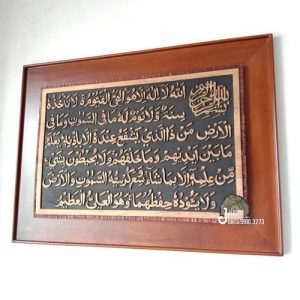 بسم الله الرحمن الرحيم
الله لا اله الا هو الحي القيوم لا تاخذه
سنة ولا نوم له ما في السموت وما في
الارض من ذا الذي يشفع عنده الا باذنه يعلم
ما بين ايديهم وما خلفهم ولا يحيطون بشيء
من علمه الا بما شاء وسع كرسيه السموت والارض
ولا يـوده حفظهما وهو العلي العظيم
0812.5910.3273